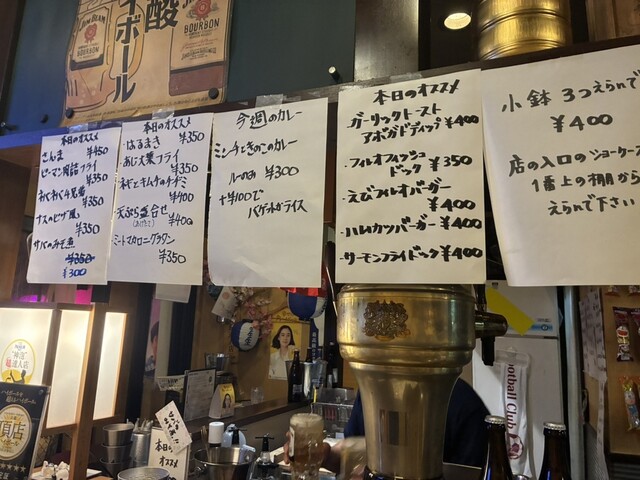 酸
イボール
JIM BEAM
BOURBON
BOURBON
本日のオススメ
さんま ¥450
ピーマン肉詰フライ
¥350
わくわく4兄弟
¥350
ナスのピザ風
¥350
サバのみそ煮
¥350
¥300
本日のオススメ
はるまき ¥350
あじ大葉フライ
¥350
ネギとキムチのチヂミ
¥400
天ぷら盛合せ
¥400
ミートマカロニグラタン
¥350
今週のカレー
ミンチときのこのカレー
ルーのみ ¥300
+¥100で
バゲットorライス
本日のオススメ
ガーリックトースト
アボガドディップ ¥400
・フィレオフィッシュ
ドック ¥350
・えびフィレオバーガー
¥400
・ハムカツバーガー ¥400
・サーモンフライドック ¥400
小鉢 3つえらんで
¥400
店の入口のショーケース
1番上の棚から
えらんで下さい
本日の
オススメ
ootball Club
頂店